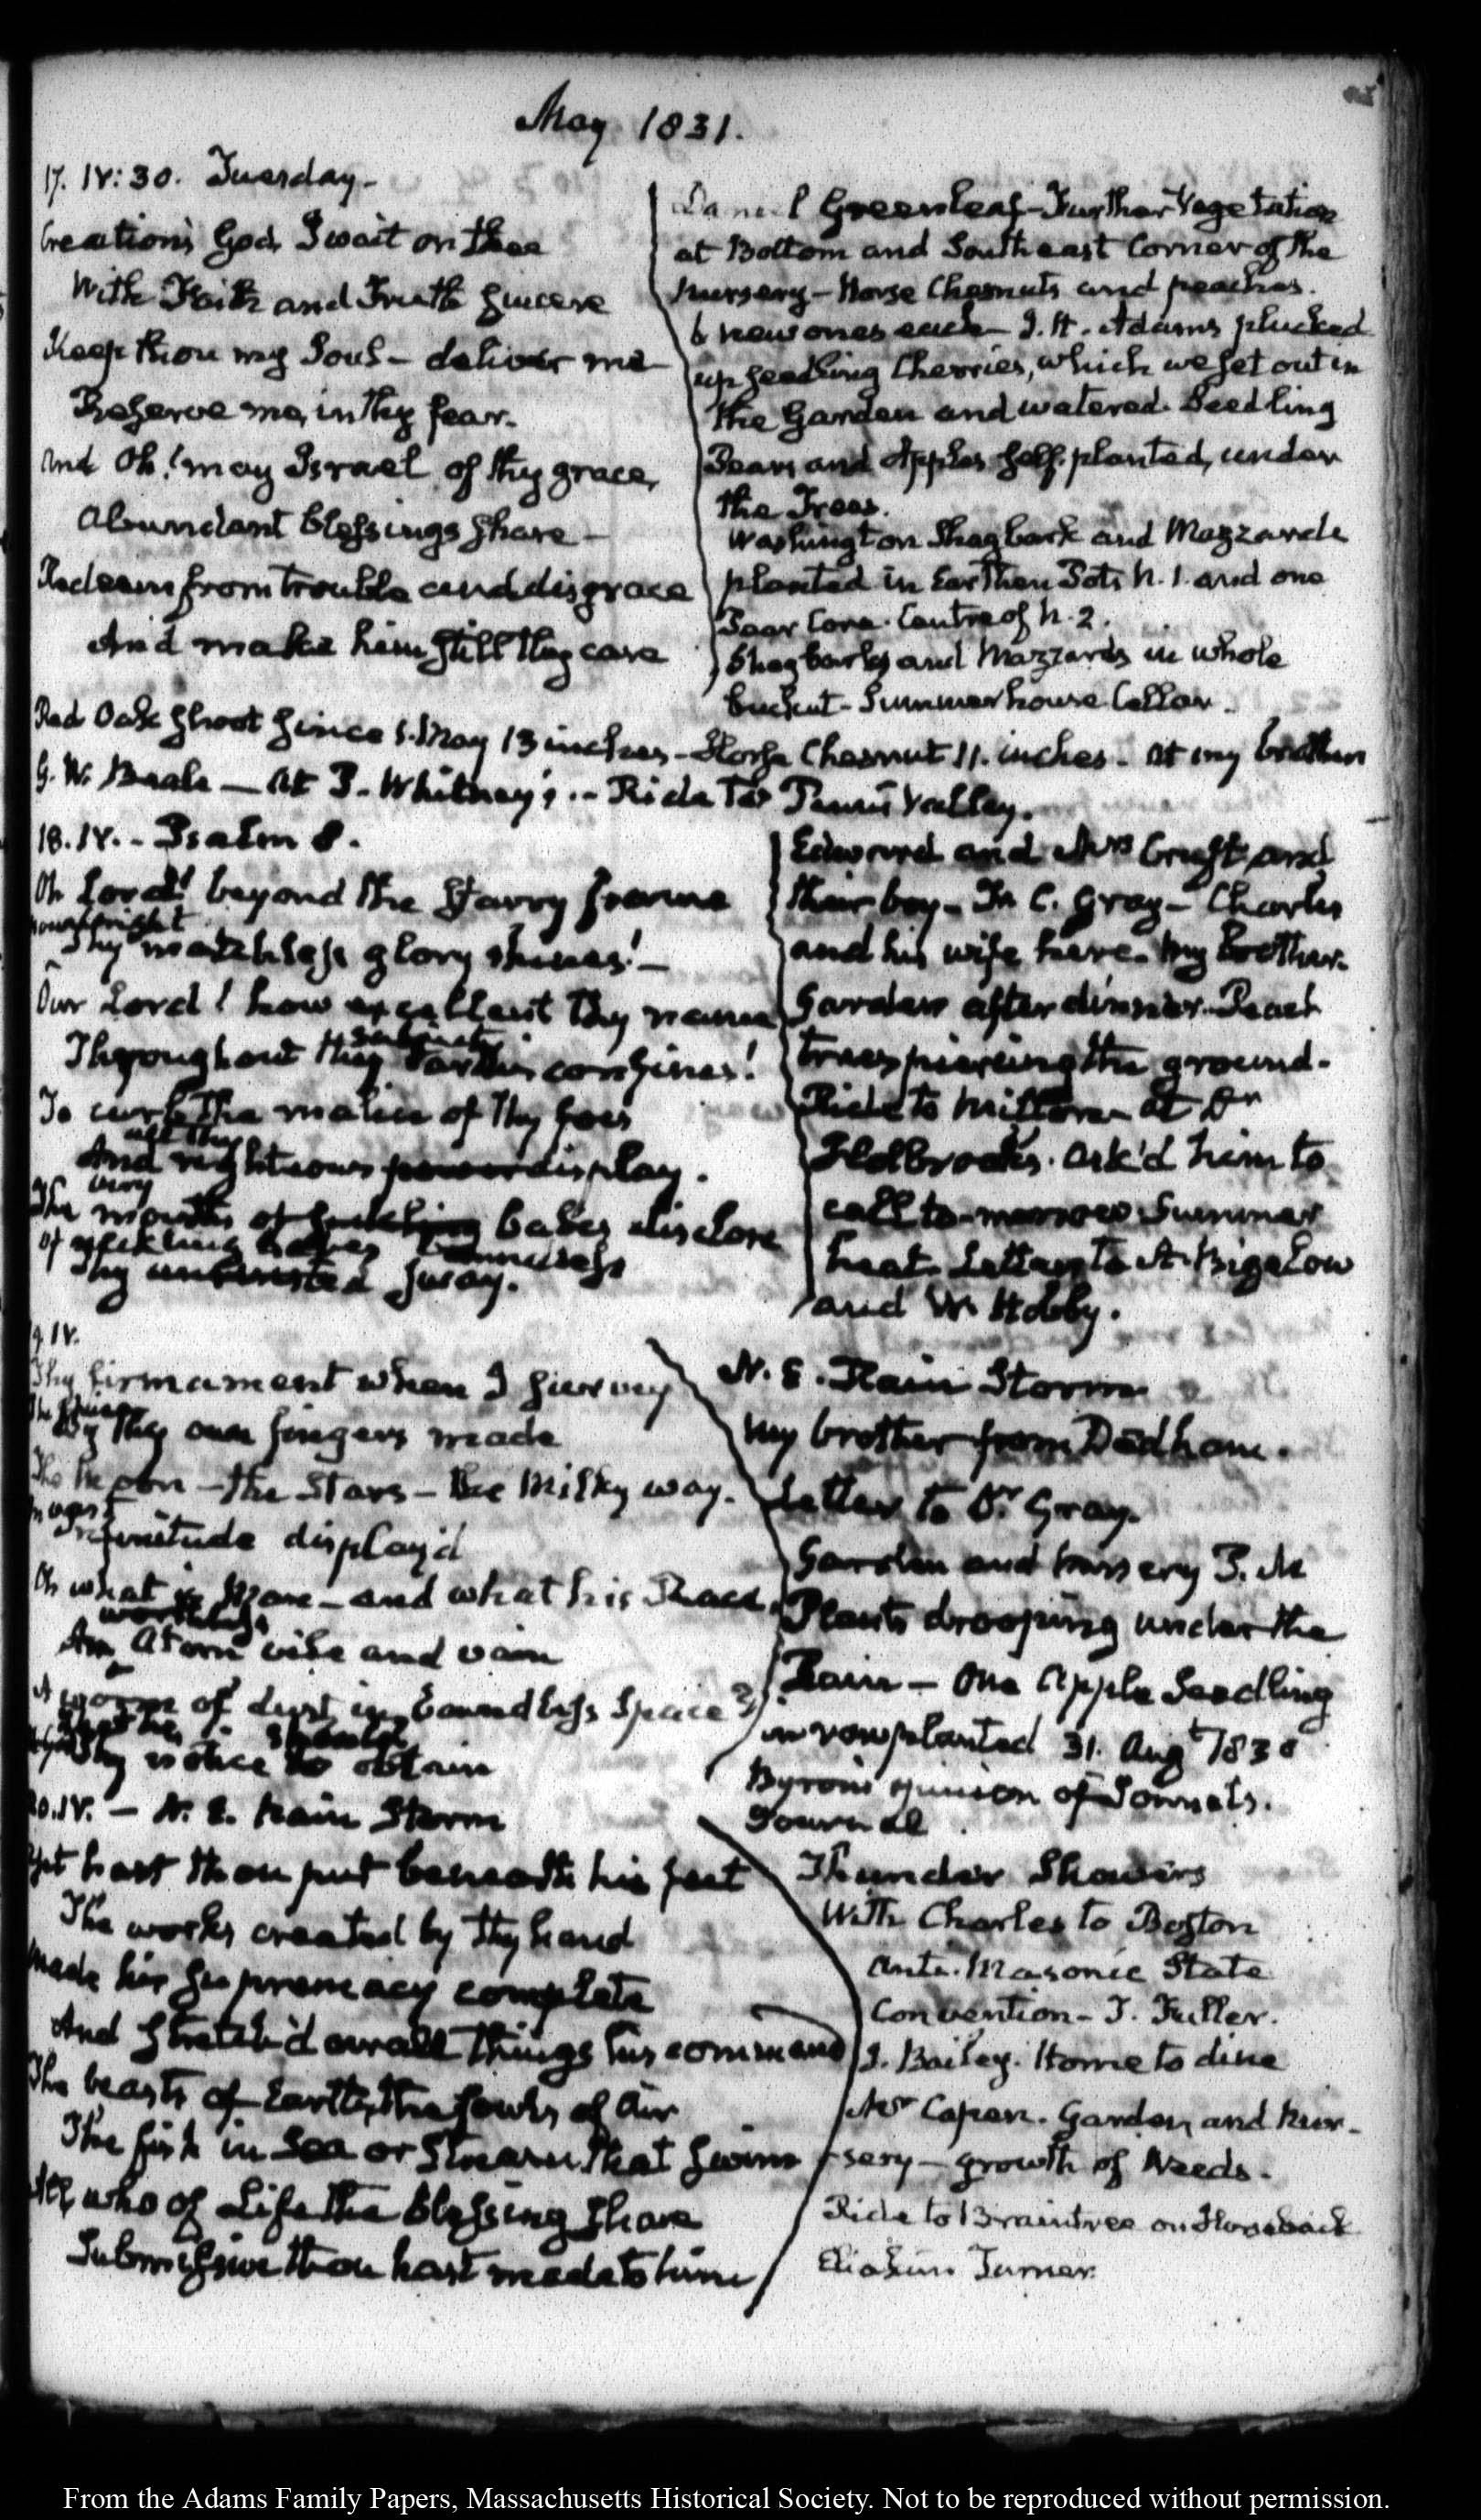 May 1831.
17. IV:30. Tuesday-
Creation's God, I wait on thee
With Faith and Truth sincere
Keep thou my Soul - deliver me
Preserve me, in thy fear.
And Oh! may Israel of thy grace,
Abundant blessings share -
Redeem from trouble and disgrace
And make him still thy care
Daniel Greenleaf - Further Vegetation
at Bottom and Southeast Corner of the
Nursery - Horse Chesnuts and peaches.
6 new ones each - I. H. Adams plucked
up seedling Cherries, which we set out in
the Garden and watered. Seedling
Pears and Apples self-planted, under
the Trees.
Washington Shagbark and Mazzards
planted in Earthen Pots N. 1. and one
Pear Core. Centre of N. 2.
Shagbarks and Mazzards in whole
bucket - Summerhouse Cellar.
Red Oak shoot since 1. May 13 inches - Horse Chesnut 11. inches - at my brothers
G. W. Beale - at T. Whitney's - Ride to Penn's Valley.
18. IV. - Psalm 8.
Oh Lord! beyond the starry frame
Thy matchless glory shines! -
Our Lord! how excellent thy name
Throughout the Earth's confines!
To curb the malice of thy foes
all thy
And righteous power display.
very
The mouths of suckling babes disclose
of suckling babes
Thy sway.
Edward and Mrs Cruft and
their boy - Fr. C. Gray - Charles
and his wife here. My brother.
Garden after dinner. Peach
trees piercing the ground.
Ride to Milton - at Dr
Holbrook's. ask'd him to
call to-morrow Summer
heat. Letters to A. Bigelow
and W. Hobby.
19. IV.
Thy firmament when I survey
By thy own fingers made
The Moon - the Stars - the Milky way.
Infinitude display'd
Oh what is Man - and what his Race.
worthless
An Atom vile and vain
A worm of dust in boundless Space?
should
Thy notice to obtain
N. E. Rain Storm
My brother from Dedham.
Letter to Dr Gray.
Garden and Nursery P. M
Plants drooping under the
Rain - One Apple Seedling
in row planted 31. Augt 1830
Byron's opinion of Sonnets.
Journal
20. IV. - N. E. Rain Storm
Yet hast thou put beneath his feet
The works created by thy hand
Made his supremacy complete
And stretch'd o'er all things his command
The beasts of Earth, the fowls of Air
The fish in Sea or Stream that swim
All who of Life the blessing share
Submissive thou hast made to him
Thunder Showers
With Charles to Boston
Anti-Masonic State
Convention - T. Fuller.
J. Bailey. Home to dine
Mr Capen. Garden and Nur-
sery - growth of Weeds.
Ride to Braintree on Horseback
Eliakim Turner.
From the Adams Family Papers, Massachusetts Historical Society. Not to be reproduced without permission.